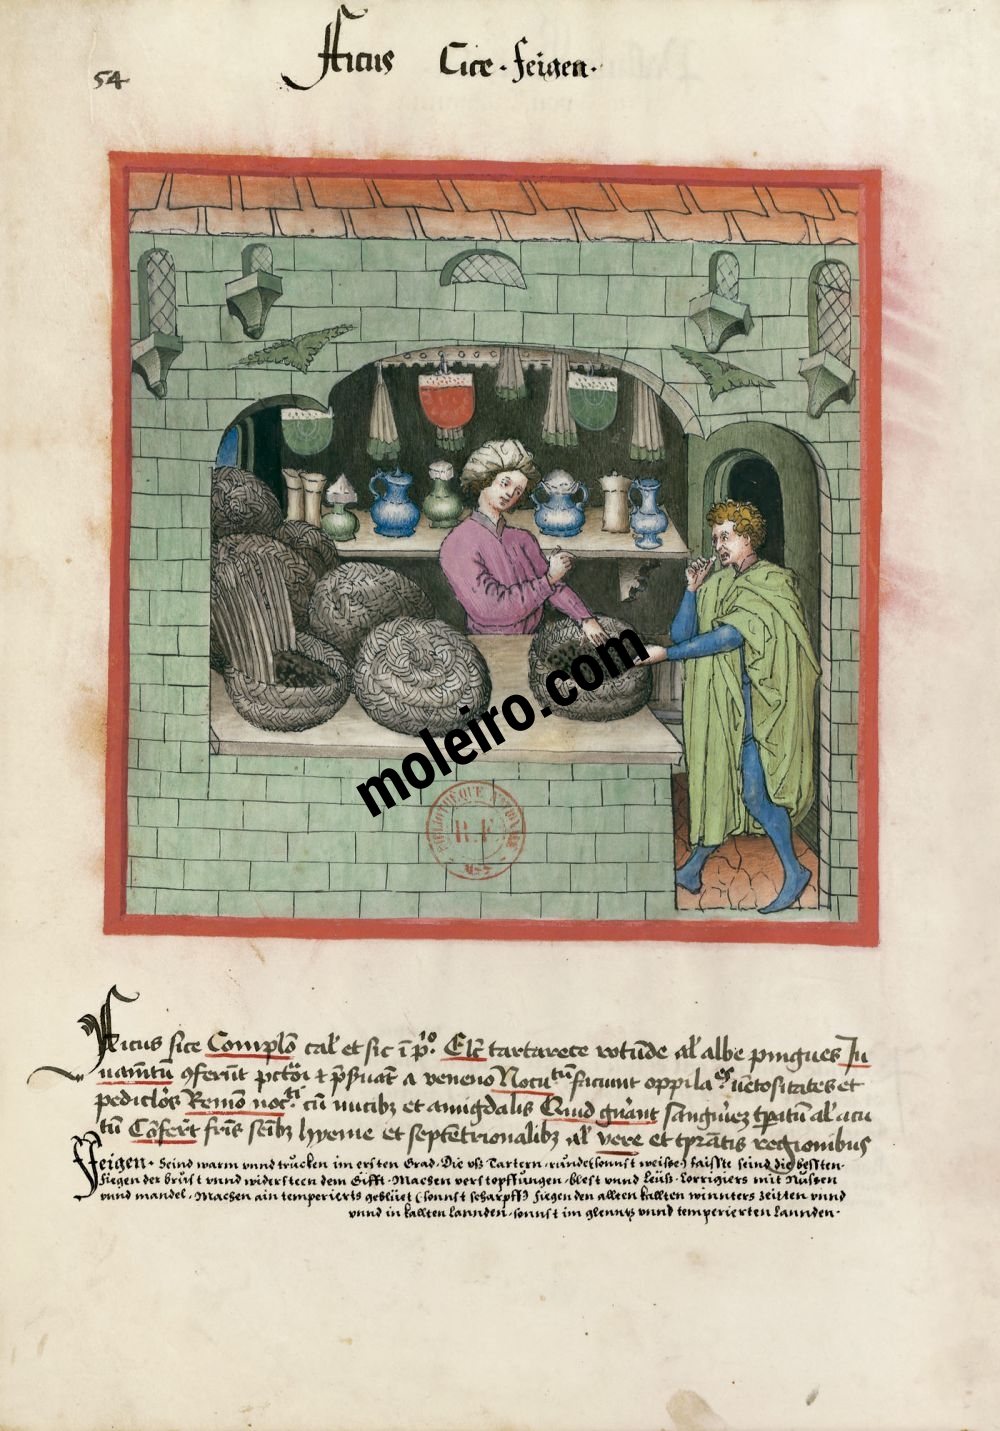 54
Ficus Sice · feigen ·
moleiro.com
BIBLIOTHÈQUE NATIONALE
R.F.
MSS
Ficus sice Complo cal' et sic i p°. Elc tartarece rotūde al' albe pingues Ju
uamtū ɔferūt pctori et pseruat a veneno Nocutū faciunt oppilaes uētositates et
pediclos Remo nocti cū nucibȝ et amigdalis Quid gnant sanguiez tpatū al' acu
tū Cōfert fris senibȝ hyeme et septētrionalibȝ al' vere et tpratis regionibus
Feigen · Seind warm vnnd trucken im ersten Grad · Die vß Tartern · runde (sonnst weisse) faisste seind die bessten ·
fiegen der brust vnnd widersteen dem Gifft · Machen verstopffungen · blest vnnd Leüß · Corrigiers mit Nussen
vnnd mandel · Machen ain temperierts geblüet (sonnst scharpff) fiegen den allten kallten winnters zeitten vnnd
vnnd in kallten Lannden · sonnst im glenntz vnnd temperierten Lannden ·